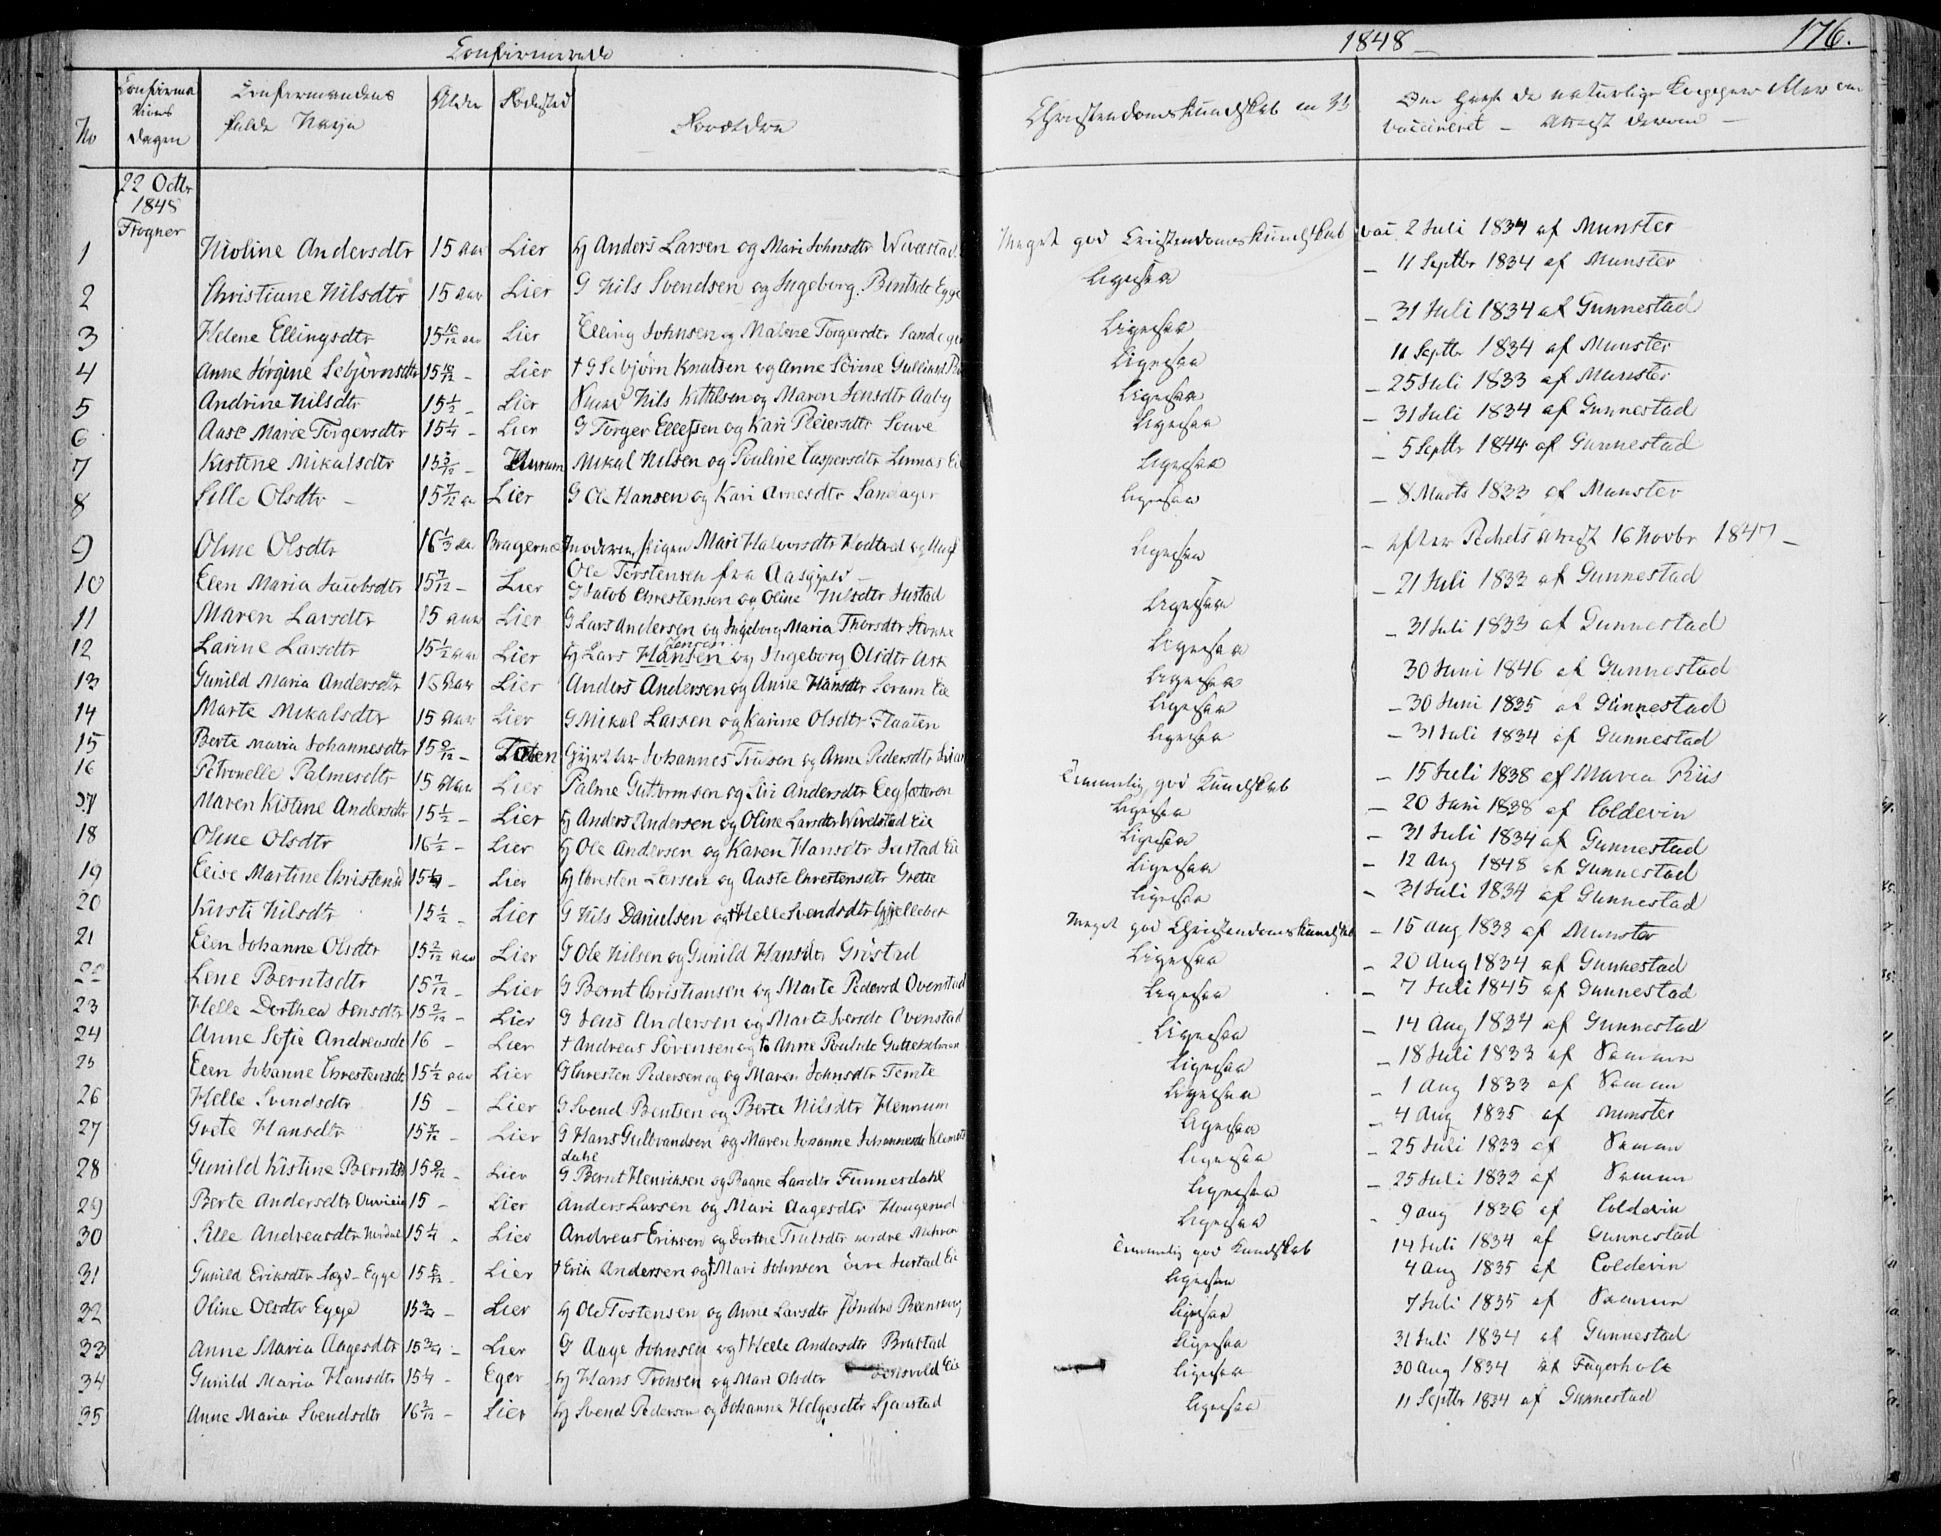 Confirmerede
1848 176.
No Confirmations Dagen Confirmandens fulde Navn Alder Fødested Forældre Christendoms Kundskab Om havt de naturlige Kopper eller er vaccineret – Attest derom –
22 Octbr 1848 Frogner
1 Nicoline Andersdtr 15 Aar Lier Anders Larsen og Mari Johnsdtr Meget god Cristendoms Kundskab vac 2 Juli 1834 af Munster
2 Christiane Nilsdtr 15 Aar Lier G Nils Svendsen og Ingeborg Bentsdr Egge Ligesaa – 11 Septbr 1834 af Munster
3 Helene Ellingsdtr 15 10/12 aar Lier Elling Johnsen og Malene Torgersdtr Ligesaa – 31 Juli 1834 af Gunnestad
4 Anne Jørgine Sebjørnsdtr 15 10/12 – Lier † G Sebjørn Knutsen og Anne Sövine Ligesaa 11 Septbr 1834 af Munster
5 Andrine Nilsdtr 15 1/2 – Lier Nils Kittilsen og Maren Jensdtr Aaby Ligesaa – 25 Juli 1833 af Munster
6 Aase Marie Torgersdtr 15 1/4 – Lier G Torger Ellefsen og Kari Ligesaa – 31 Juli 1834 af Gunnestad
7 Kistine Mikalsdtr Hurum Mikal Nilsen og Pouline Caspersdtr Linnes Eie Ligesaa – 5 Septbr 1844 af Gunnestad
8 Sille Olsdtr – 15 7/12 Lier G Ole Hansen og Kari Arnesdtr Sandager Ligesaa – 8 Marts 1833 af Munster
9 Oline Olsdtr 16 1/3 Bragernes Moderen Pigen Mari Halvorsdtr og Ungk Ligesaa – efter Attest 16 Novbr 1847 –
Ole Torstensen fra –
10 Elen Maria Jacobsdtr 15 7/12 – Lier G Jacob Chrestensen og Oline Nilsdtr Justad Ligesaa – 21 Juli 1833 af Gunnestad
11 Maren Larsdtr 15 Aar Lier G Lars Andersen og Ingeborg Maria Thorsdtr Ligesaa – 31 Juli 1833 af Gunnestad
12 Larine Larsdtr 15 1/2 aar Lier Lars Hansen Jensen og Ingeborg Olsdtr Ask Ligesaa 30 Juni 1846 af Gunnestad
13 Gunild Maria Andersdtr 15 Aar Lier Anders Andersen og Anne Hansdtr Eie Ligesaa – 30 Juni 1835 af Gunnestad
14 Marte Mikalsdtr 15 Aar Lier G Mikal Larsen og Karine Olsdtr Flaaten Ligesaa – 31 Juli 1834 af Gunnestad
15 Berte Maria Johannesdtr Toten Johannes Trulsen og Anne Pedersdtr Ligesaa – 15 Juli 1838 af Maria Riis
16 Petronelle Palmesdtr 15 Aar Lier Palme Guttormsen og Siri Andersdtr Temmelig god Kundskab – 20 Juni 1838 af Coldevin
17 Maren Kistine Andersdtr 15 1/2 – Lier Anders Andersen og Oline Larsdtr Eie Ligesaa – 31 Juli 1834 af Gunnestad
18 Oline Olsdtr 16 1/2 – Lier Ole Andersen og Karen Hansdtr Justad Eie Ligesaa – 12 Aug 1848 af Gunnestad
19 Elise Martine Christensd – Lier Chresten Larsen og Aaste Chrestensdtr Grette Ligesaa – 31 Juli 1834 af Gunnestad
20 Kirsti Nilsdtr 15 1/2 – Lier G Nils Danielsen og † Helle Svendsdtr Gjellebek Ligesaa
21 Elen Johanne Olsdtr Lier G Ole Nilsen og Gunild Hansdtr Gröstad Meget god Christendoms Kundskab – 15 Aug 1833 af Munster
22 Lene Berntsdtr 15 7/12 – Lier G Bernt Christiansen og Marte Pedersd Ovenstad Ligesaa – 20 Aug 1834 af Gunnestad
23 Helle Dorthea Jensdtr – Lier G Jens Andersen og Marte Iversdr Ovenstad Ligesaa – 7 Juli 1845 af Gunnestad
24 Anne Sofie Andreasdr 16 – Lier † Andreas Sörensen og † Anne Poulsdr Ligesaa – 14 Aug 1834 af Gunnestad
25 Elen Johanne Chrestensdr 15 1/2 aar Lier G Chresten Pedersen og Maren Johnsdtr Temte Ligesaa – 18 Juli 1833 af
26 Helle Svendsdtr 15 – Lier G Svend Bentsen og Berte Nilsdtr Hennum Ligesaa – 1 Aug 1833 af
27 Grete Hansdtr – Lier G Hans Gulbrandsen og Maren Johanne Johannesdr Klemets dahl Ligesaa – 4 Aug 1835 af Munster
28 Gunild Kistine Berntsd – Lier G Bernt Henriksen og Ragne Larsdtr Ligesaa – 25 Juli 1833 af
29 Berte Andersdtr 15 – Lier Anders Larsen og Mari Aagesdtr Haugerud Ligesaa – 25 Juli 1832 af
30 Andreasdtr 15 1/4 – Lier Andreas Eriksen og Dorthe Trulsdtr nordre Ligesaa – 9 Aug 1836 af Coldevin
31 Gunild Eriksdtr Egge – Lier † Erik Andersen og † Mari Johnsen övre Justad Eie Temmelig god Kundskab 14 Juli 1834 af Gunnestad
32 Oline Olsdtr Egge – Lier Ole Tostensen og Anne Larsdtr Ligesaa 4 Aug 1835 af Coldevin
33 Anne Maria Aagesdtr 15 3/4 – Lier G Aage Johnsen og † Helle Andersdtr Brastad Ligesaa 7 Juli 1835 af
34 Gunild Maria Hansdtr 15 1/4 – Eger Hans Tronsen og Mari Olsdtr Eie Ligesaa 31 Juli 1834 af Gunnestad
35 Anne Maria Svendsdtr – Lier Svend Pedersen og Johanne Helgesdtr Sjaastad Ligesaa 30 Aug 1834 af Fagerholt
Ligesaa 11 Septbr 1834 af Gunnestad